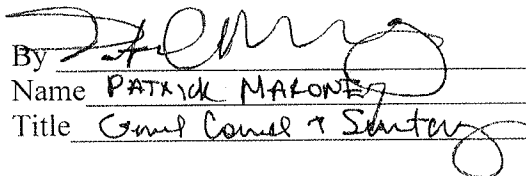 By
Name PATRICK MARONEY
Title General Counsel + Secretary